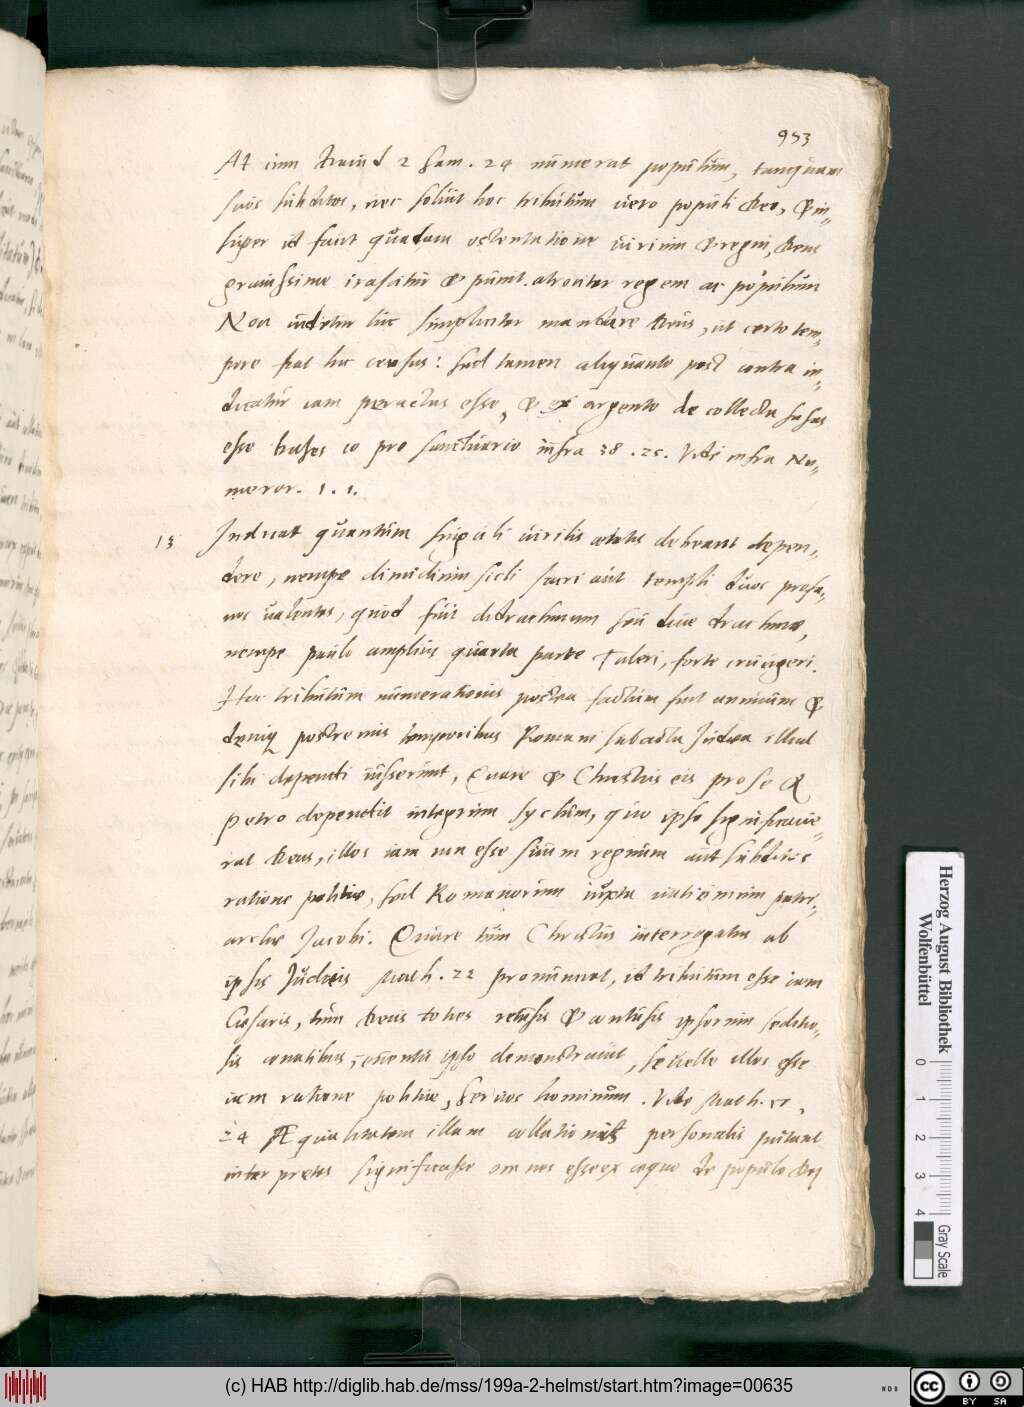 953
At cum Dauid 2 Sam. 24 numerat populum, tanquam
suos subditos, nec soluit hoc tributum uero populi Deo, & in=
super id facit quadam ostentatione uirium & regni, Deus
grauissime irascitur & punit atrociter regem ac populum
Non uidetur hic simpliciter mandare Deus, ut certo tem=
pore fiat hic census: sed tamen aliquanto post contra in=
dicatur iam peractus esse, & ex argento de collecta fusas
esse bases eo pro sanctuario infra 38 . 25. Vide infra Nu=
meror. 1 . 1.
13 Indicat quantum singuli uirilis ætatis debeant depen=
dere, nempe dimidium sicli sacri aut templi duos profa=
nos ualentes, quod fuit didrachmum seu duæ drachmæ,
nempe paulo amplius quarta parte Taleri, forte crucigeri.
Hoc tributum numerationis postea factum fuit annuum &
deniq postremis temporibus Romani subacta Iudæa illud
sibi dependi iusserunt, Quare & Christus eis pro se &
Petro dependit integrum syclum, quo ipso significaue=
rat Deus, illos iam non esse suum regnum aut subditos
ratione politiæ, sed Romanorum iuxta uaticinium patri=
archæ Jacobi. Quare tum Christus interrogatus ab
ipsis Judæis Math. 22 pronunciat, id tributum esse iam
Cæsaris, tum Deus toties retusis & contusis ipsorum seditio=
sis conatibus, euentu ipso demonstrauit, se uelle illos esse
iam ratione politiæ, seruos hominum . Vide Math. 17 .
24 Æqualitatem illam collationis personalis putant
interpretes significasse omnes esse ex æquo de populo Dei
Herzog August Bibliothek
Wolfenbüttel
0 1 2 3 4
Gray Scale
(c) HAB http://diglib.hab.de/mss/199a-2-helmst/start.htm?image=00635
cc BY SA